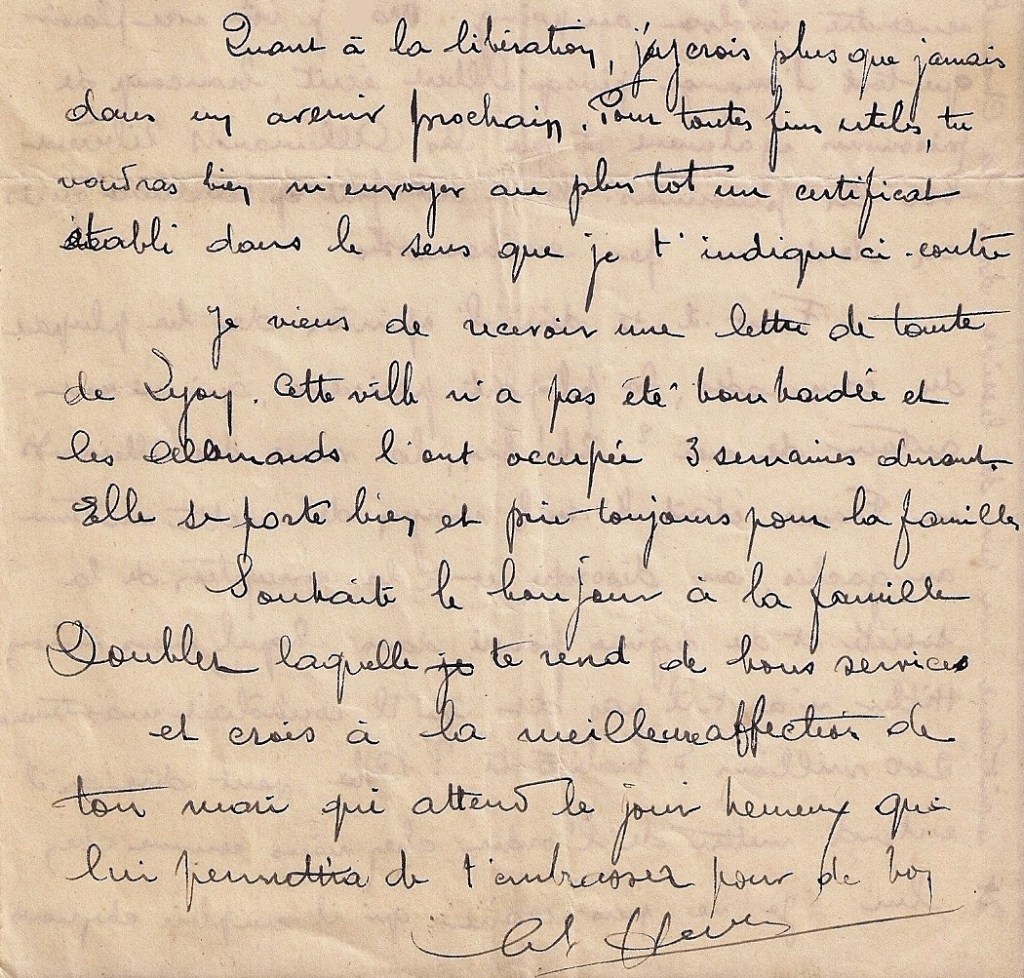 Quant à la libération, j'y crois plus que jamais
dans un avenir prochain. Pour toutes fins utiles, tu
voudras bien m'envoyer au plus tot un certificat
établi dans le sens que je t'indique ci-contre
Je viens de recevoir une lettre de tante
de Lyon. Cette ville n'a pas été bombardée et
les allemands l'ont occupée 3 semaines durant.
Elle se porte bien et prie toujours pour la famille
Souhaite le bonjour à la famille
Doublet laquelle te rend de bons services
et crois à la meilleure affection de
ton mari qui attend le jour heureux qui
lui permettra de t'embrasser pour de bon